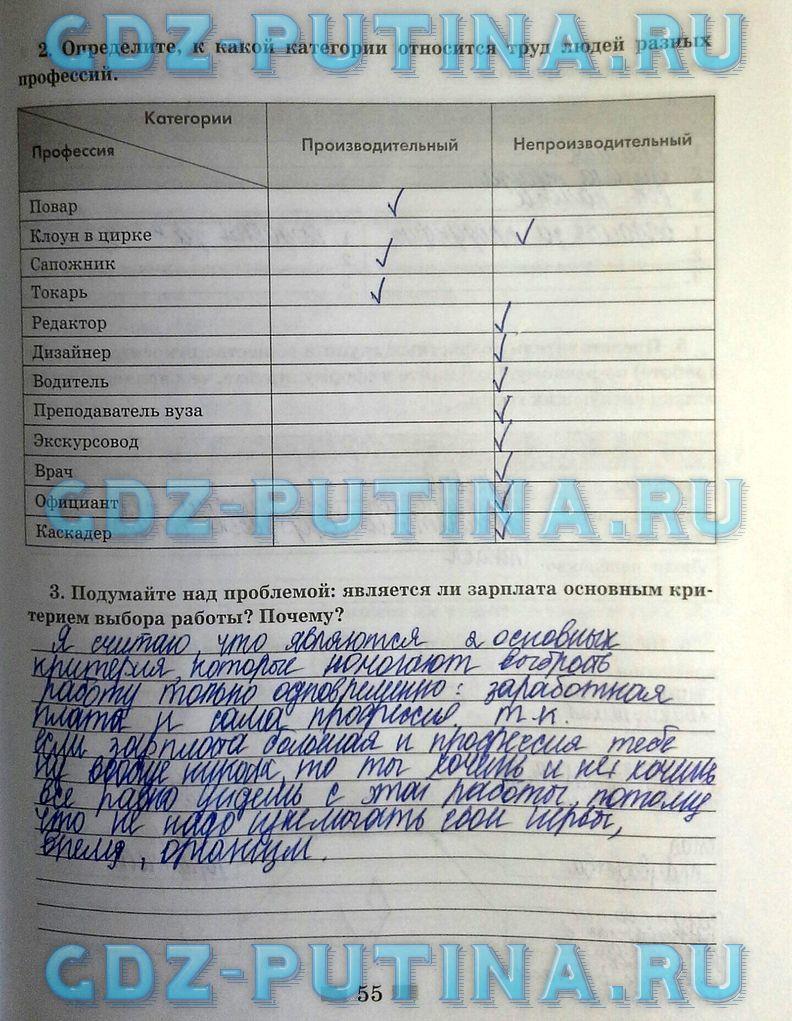 GDZ-PUTINA.RU
2. Определите, к какой категории относится труд людей разных
профессий.
Категории
Профессия
Производительный
Непроизводительный
Повар ✓
Клоун в цирке ✓
Сапожник ✓
Токарь ✓
Редактор ✓
Дизайнер ✓
Водитель ✓
Преподаватель вуза ✓
Экскурсовод ✓
Врач ✓
GDZ-PUTINA.RU
Официант ✓
Каскадер ✓
3. Подумайте над проблемой: является ли зарплата основным кри-
терием выбора работы? Почему?
Я считаю, что являются 2 основных
критерия, которые помогают выбрать
работу только одновременно: заработная
плата и сама профессия, т.к.
если зарплата большая и профессия тебе
ну вообще никак, то ты хочешь и не хочешь
все равно уйдешь с этой работы, потому
что не надо тратить свои нервы,
время, организм.
GDZ-PUTINA.RU
55